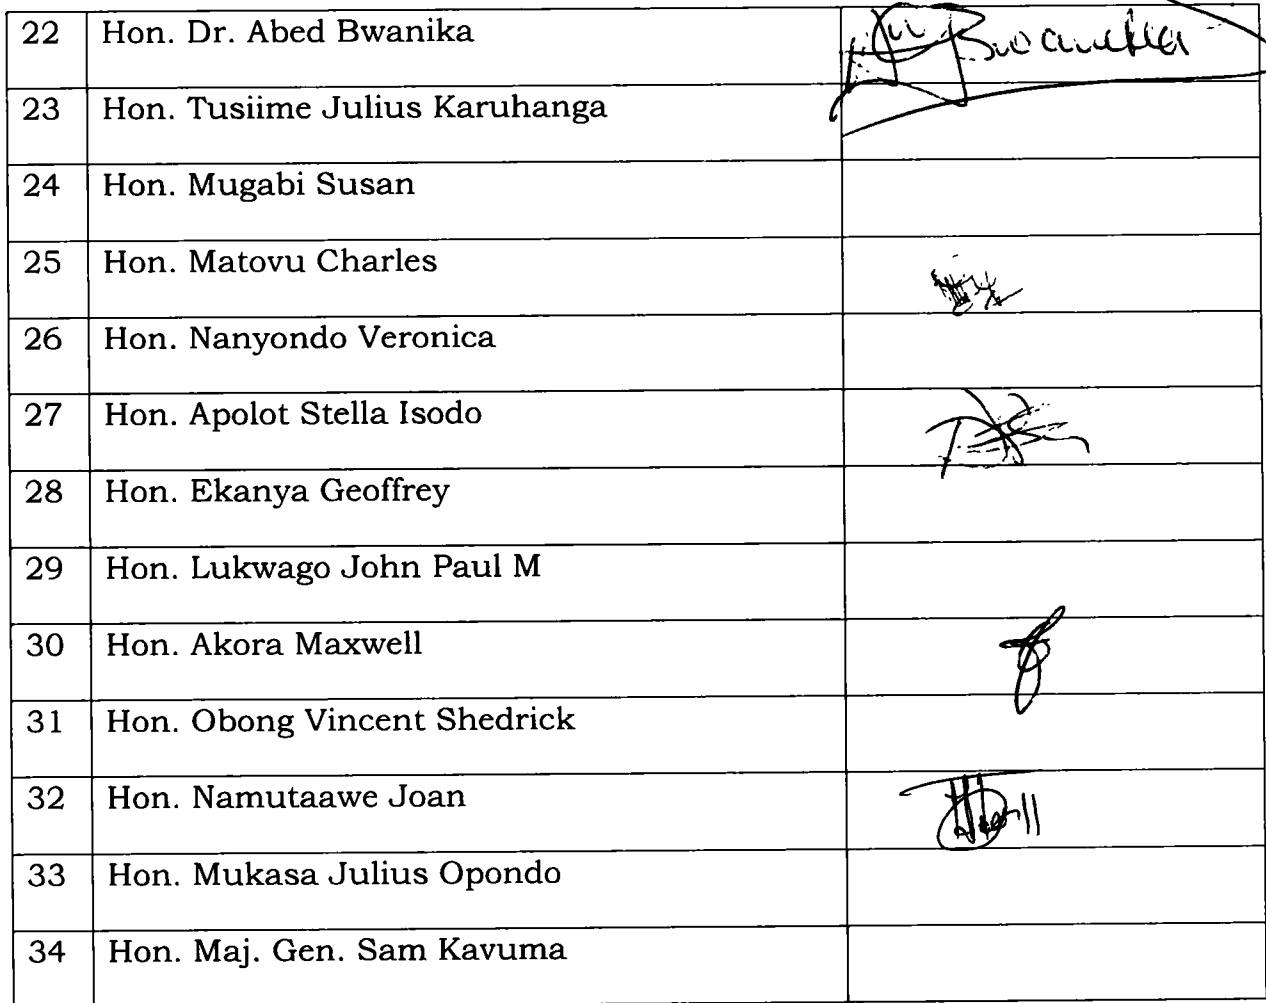 22 Hon. Dr. Abed Bwanika Bwanika
23 Hon. Tusiime Julius Karuhanga
24 Hon. Mugabi Susan
25 Hon. Matovu Charles
26 Hon. Nanyondo Veronica
27 Hon. Apolot Stella Isodo
28 Hon. Ekanya Geoffrey
29 Hon. Lukwago John Paul M
30 Hon. Akora Maxwell
31 Hon. Obong Vincent Shedrick
32 Hon. Namutaawe Joan
33 Hon. Mukasa Julius Opondo
34 Hon. Maj. Gen. Sam Kavuma